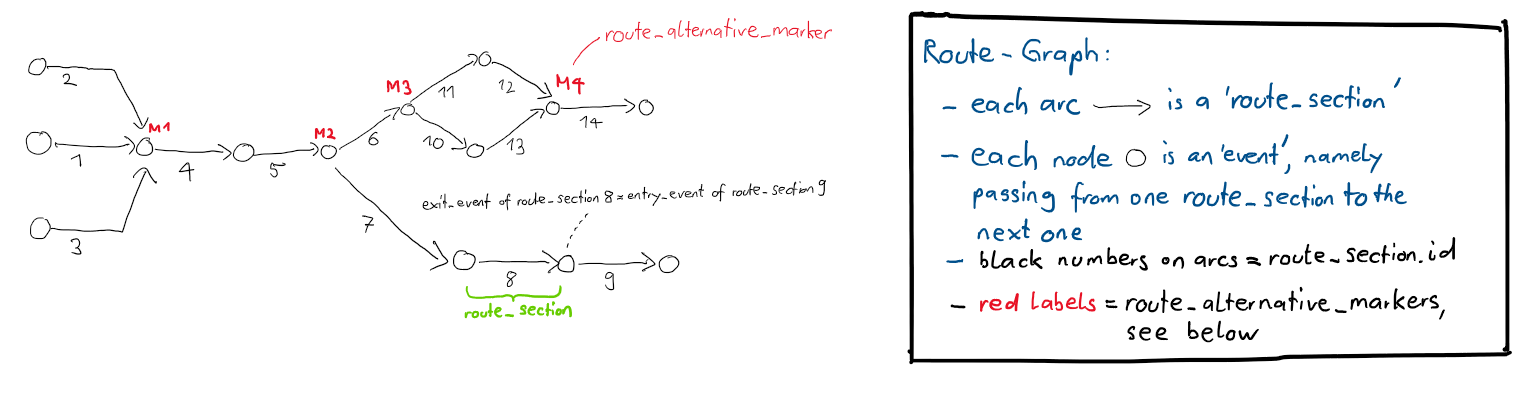 route_alternative_marker
2
M1
1
4
3
5
M2
6
M3
11
12
M4
10
13
14
7
exit_event of route_section 8 = entry_event of route_section 9
8
9
route_section
Route-Graph:
- each arc → is a 'route_section'
- each node O is an 'event', namely
passing from one route_section to the
next one
- black numbers on arcs = route_section.id
- red labels = route_alternative_markers,
see below